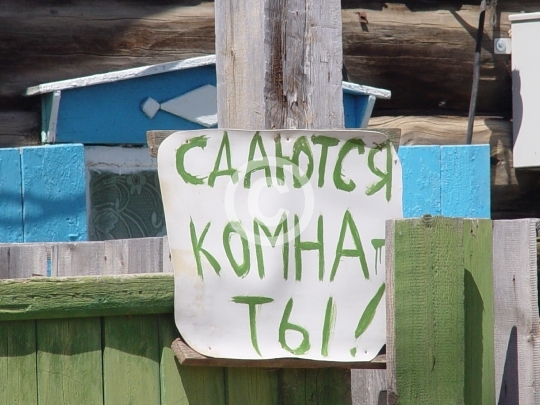 СДАЮТСЯ
КОМНА-
ТЫ!